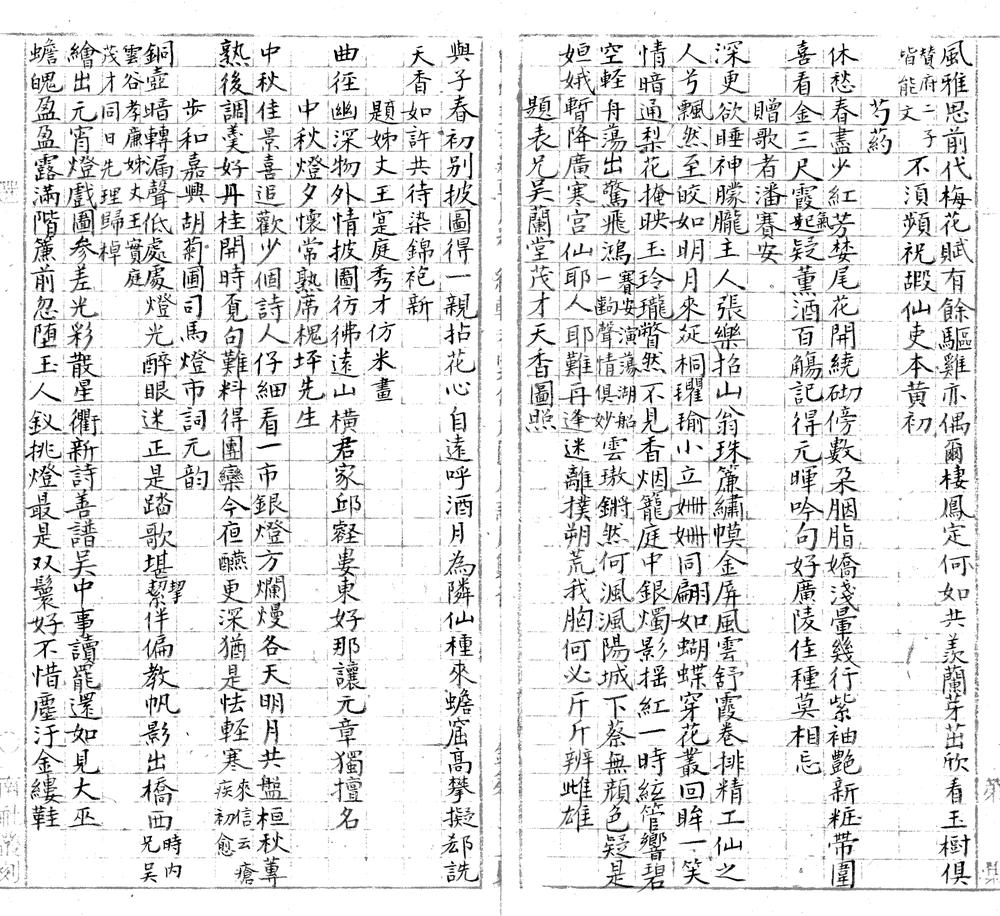 風雅思前代梅花賦有餘驅雞亦偶爾棲鳳定何如共羨蘭芽茁欣看玉樹俱
贊府二子皆能文不須頻祝嘏仙吏本黄初
芍葯
休愁春盡少紅芳婪尾花開繞砌傍數朶胭脂嬌淺暈幾行紫袖艷新粧帶圍
喜看金三尺霞起氣疑薰酒百觴記得元暉吟句好廣陵佳種莫相忘
贈歌者潘賽安
深更欲睡神朦朧主人張樂招山翁珠簾繡幙金屏風雲舒霞卷排精工仙之
人兮飄然至皎如明月來疑桐瓘瑜小立姍姍同翩如蝴蝶穿花叢回眸一笑
情暗通梨花掩映玉玲瓏瞥然不見香烟籠庭中銀燭影摇紅一時絃管響碧
空輕舟蕩出驚飛鴻賽安演蕩湖船一齣聲情俱妙雲璈鏘然何渢渢陽城下蔡無顔色疑是
姮娥暫降廣寒宮仙耶人耶難再逢迷離撲朔荒我胸何必斤斤辨雌雄
題表兄吴蘭堂茂才天香圖照
與子春初别披圖得一親拈花心自遠呼酒月為隣仙種來蟾窟高攀擬郄詵
天香如許共待染錦袍新
題姊丈王寔庭秀才仿米畫
曲徑幽深物外情披圖彷彿遠山橫君家邱壑婁東好那讓元章獨擅名
中秋燈夕懷常熟席槐坪先生
中秋佳景喜追歡少個詩人仔細看一市銀燈方爛熳各天明月共盤桓秋蓴
熟後調羹好丹桂開時覔句難料得團欒今夜醼更深猶是怯輕寒來信云瘧疾初愈
步和嘉興胡菊圃司馬燈市詞元韵
銅壺暗轉漏聲低處處燈光醉眼迷正是踏歌堪絜挈伴偏教帆影出橋西時内兄吴
雲谷孝廉姊丈王實庭茂才同日先理歸棹
繪出元宵燈戲圖參差光彩散星衢新詩善譜吴中事讀罷還如見大巫
蟾魄盈盈露滿階簾前忽堕玉人釵挑燈最是双鬟好不惜塵汙金縷鞋